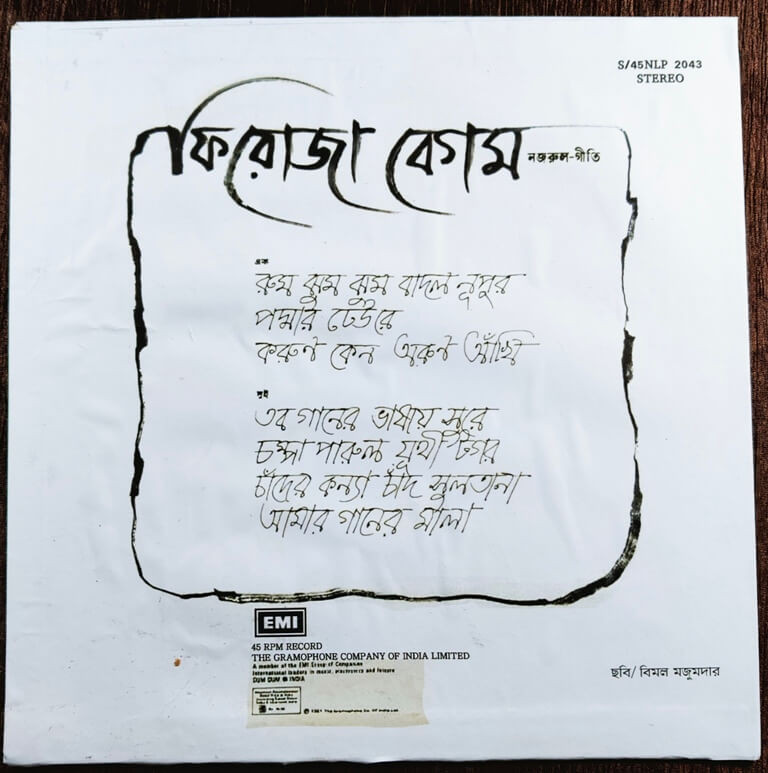 S/45NLP 2043
STEREO
ফিরোজা বেগম
নজরুল-গীতি
এক
রুম ঝুম ঝুম বাদল নূপুর
পদ্মার ঢেউরে
করুণ কেন অরুণ আঁখি
দুই
তব গানের ভাষায় সুরে
চম্পা পারুল যূথী টগর
চাঁদের কন্যা চাঁদ সুলতানা
আমার গানের মালা
EMI
45 RPM RECORD
THE GRAMOPHONE COMPANY OF INDIA LIMITED
A member of the EMI Group of Companies
International leaders in music, electronics and leisure
DUM DUM INDIA
The Gramophone Co. of India Ltd
ছবি/ বিমল মজুমদার